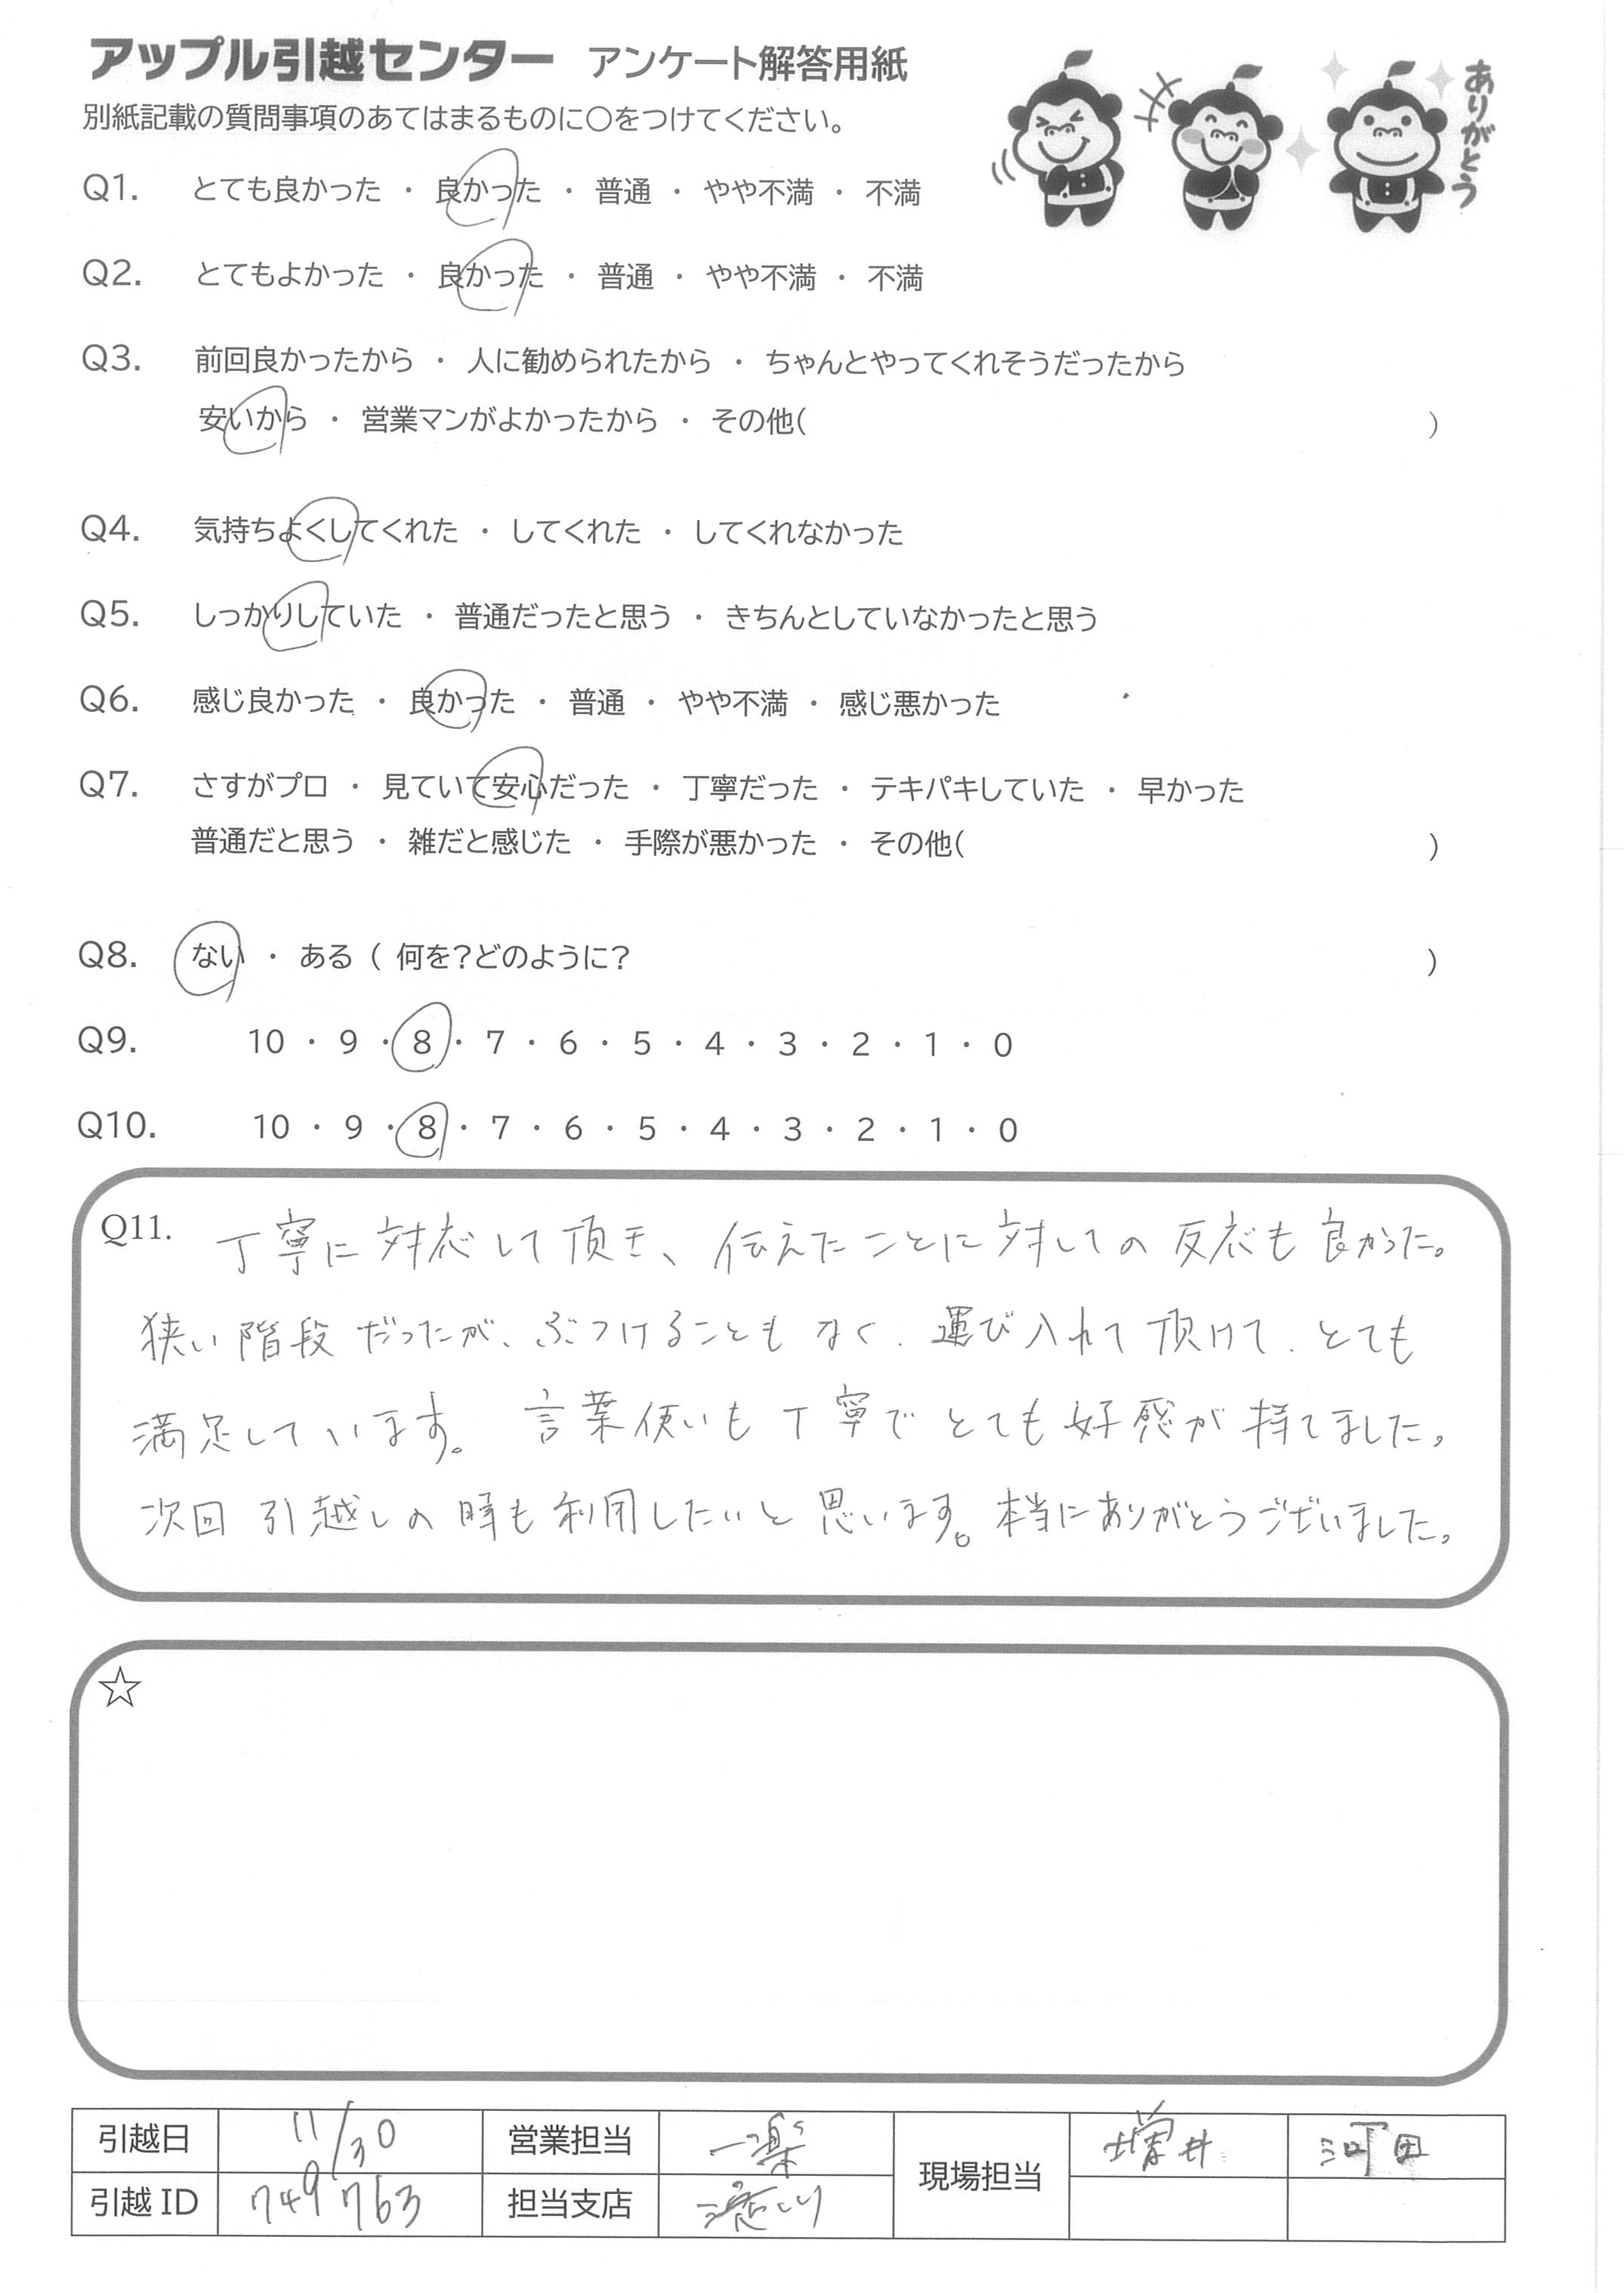 アップル引越センター アンケート解答用紙
別紙記載の質問事項のあてはまるものに○をつけてください。
ありがとう
Q1. とても良かった ・ 良かった ・ 普通 ・ やや不満 ・ 不満
Q2. とてもよかった ・ 良かった ・ 普通 ・ やや不満 ・ 不満
Q3. 前回良かったから ・ 人に勧められたから ・ ちゃんとやってくれそうだったから
安いから ・ 営業マンがよかったから ・ その他( )
Q4. 気持ちよくしてくれた ・ してくれた ・ してくれなかった
Q5. しっかりしていた ・ 普通だったと思う ・ きちんとしていなかったと思う
Q6. 感じ良かった ・ 良かった ・ 普通 ・ やや不満 ・ 感じ悪かった
Q7. さすがプロ ・ 見ていて安心だった ・ 丁寧だった ・ テキパキしていた ・ 早かった
普通だと思う ・ 雑だと感じた ・ 手際が悪かった ・ その他( )
Q8. ない ・ ある ( 何を?どのように? )
Q9. 10 ・ 9 ・ 8 ・ 7 ・ 6 ・ 5 ・ 4 ・ 3 ・ 2 ・ 1 ・ 0
Q10. 10 ・ 9 ・ 8 ・ 7 ・ 6 ・ 5 ・ 4 ・ 3 ・ 2 ・ 1 ・ 0
Q11. 丁寧に対応して頂き、伝えたことに対しての反応も良かった。
狭い階段だったが、ぶつけることもなく、運び入れて頂けて、とても
満足しています。言葉使いも丁寧でとても好感が持てました。
次回引越しの時も利用したいと思います。本当にありがとうございました。
☆
引越日 11/30 営業担当 一楽 現場担当 増井 河田
引越ID 749763 担当支店